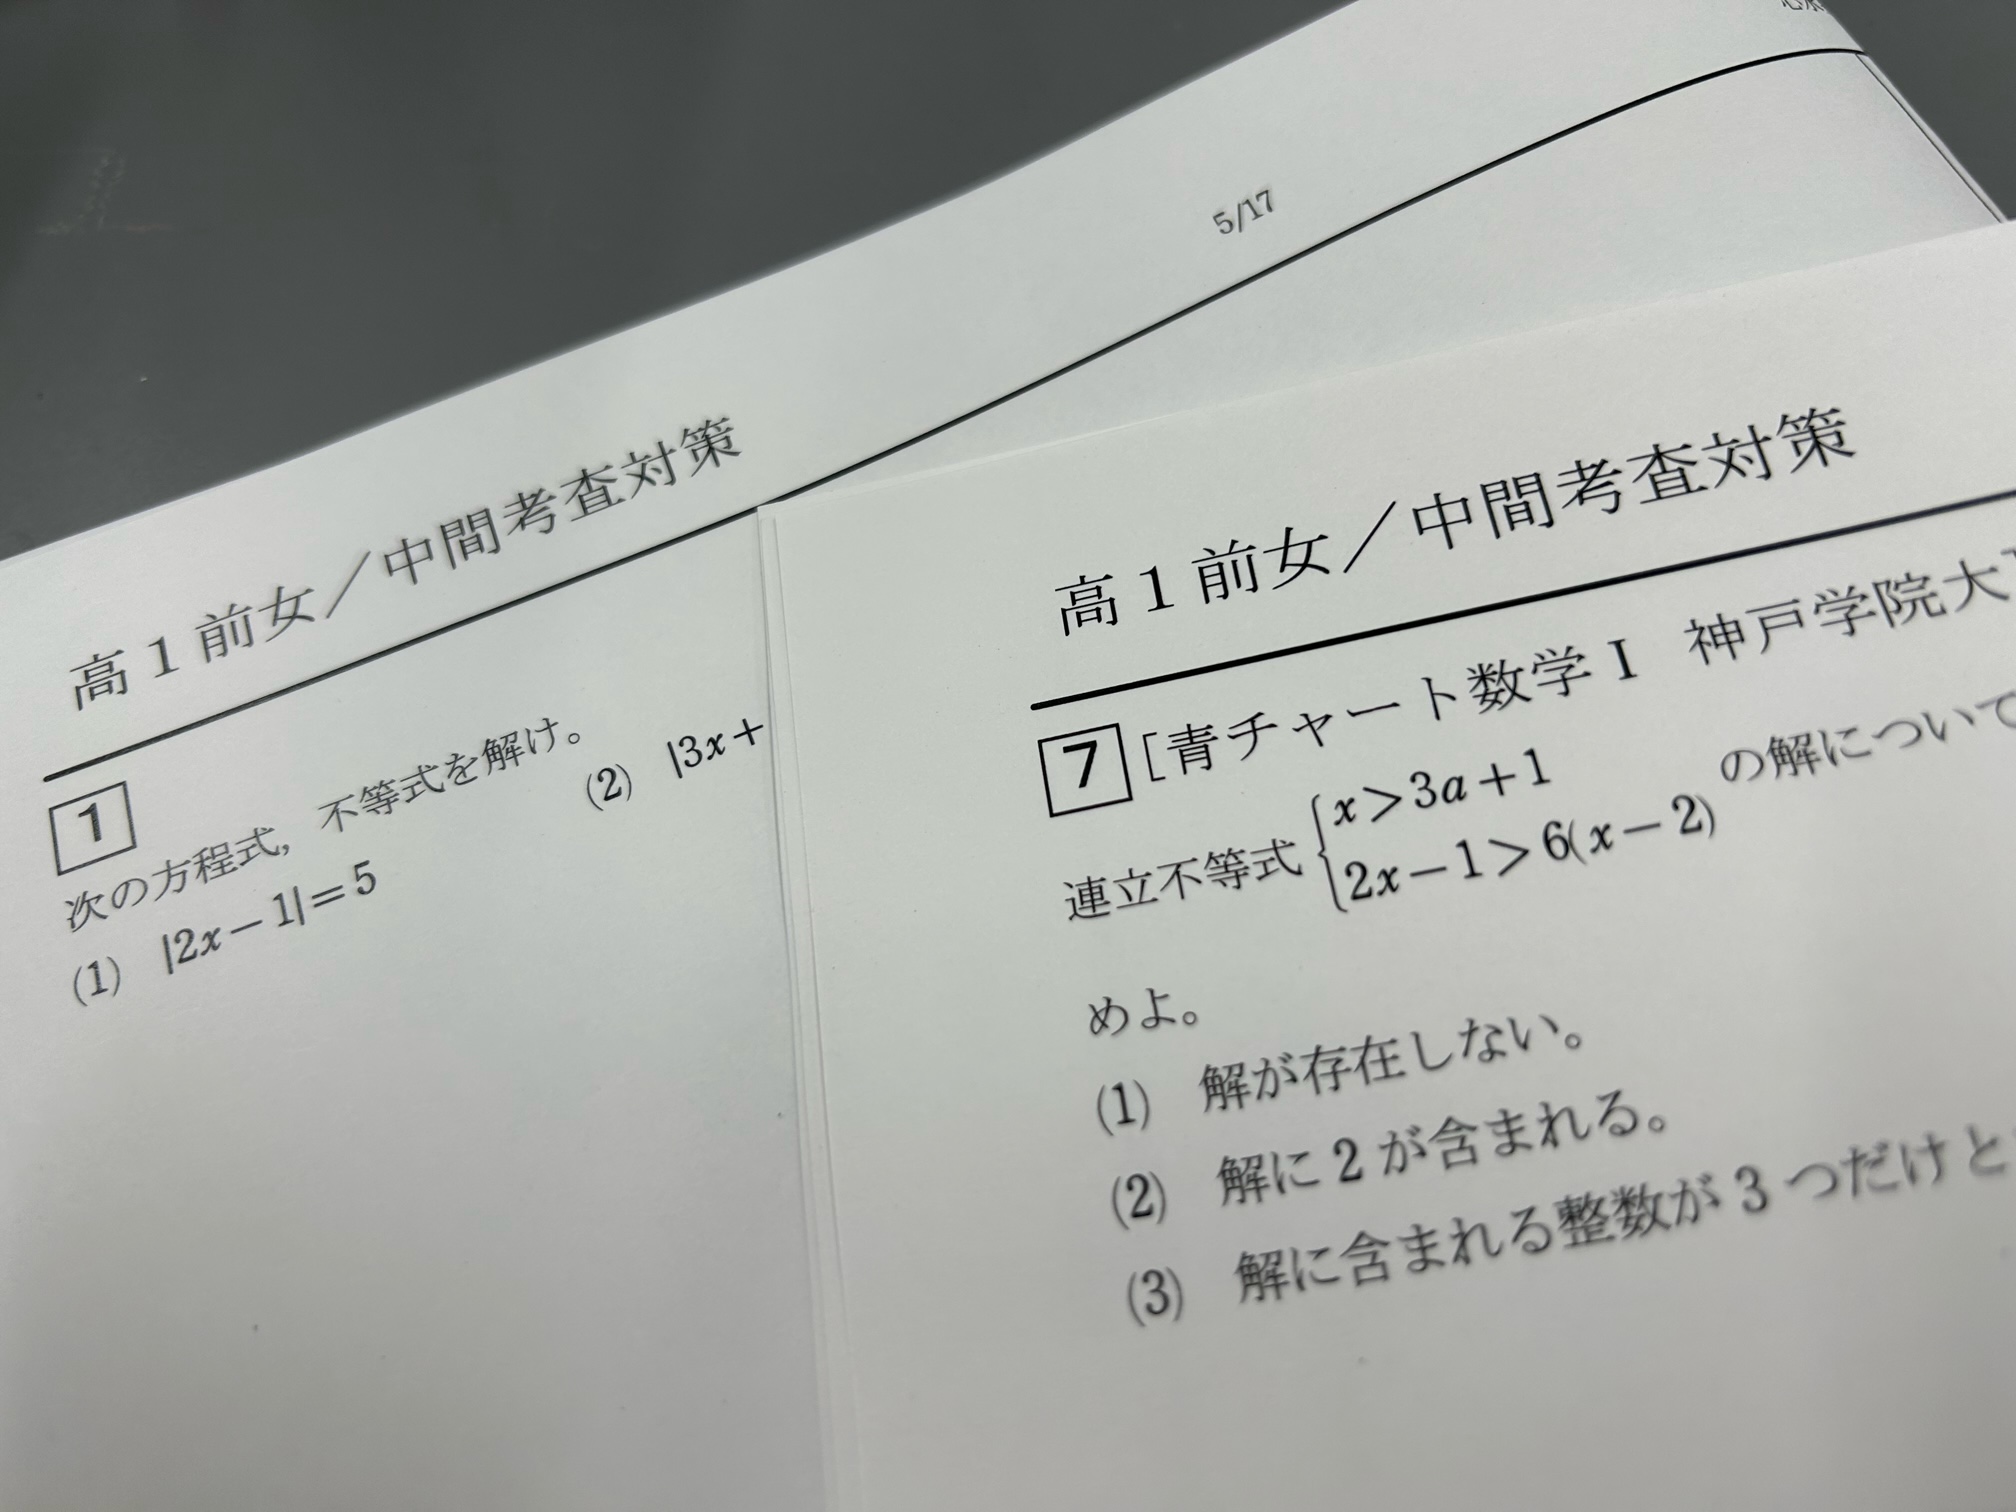 5/17
高1前女／中間考査対策
1
次の方程式，不等式を解け。
(1) |2x－1|＝5
(2) |3x＋
高1前女／中間考査対策
7 [青チャート数学I 神戸学院大]
連立不等式 { x＞3a＋1
2x－1＞6(x－2) の解について
めよ。
(1) 解が存在しない。
(2) 解に2が含まれる。
(3) 解に含まれる整数が3つだけと